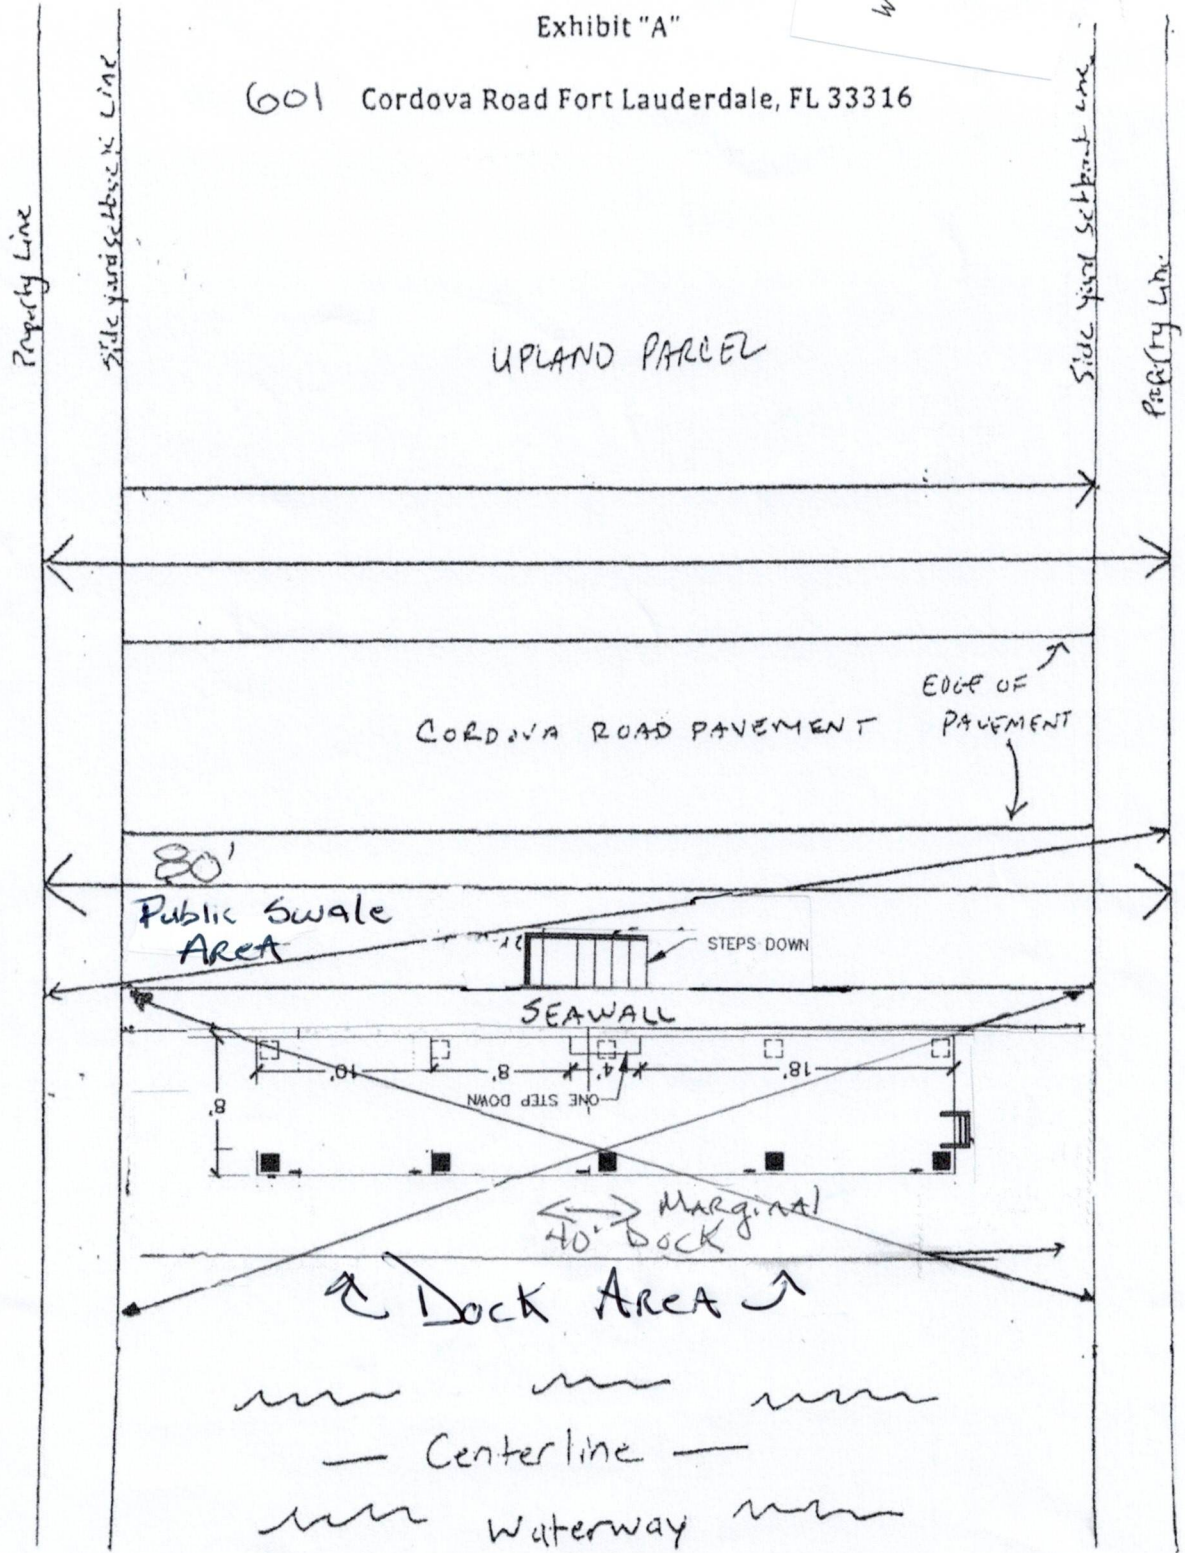 Exhibit "A"
601 Cordova Road Fort Lauderdale, FL 33316
Property Line
Side yard setback Line
Side yard setback Line
Property Line
UPLAND PARCEL
EDGE OF
PAVEMENT
CORDOVA ROAD PAVEMENT
80'
Public Swale
AREA
STEPS DOWN
SEAWALL
10'
8'
4'
18'
ONE STEP DOWN
8'
MARGINAL
40' DOCK
DOCK AREA
Centerline
Waterway